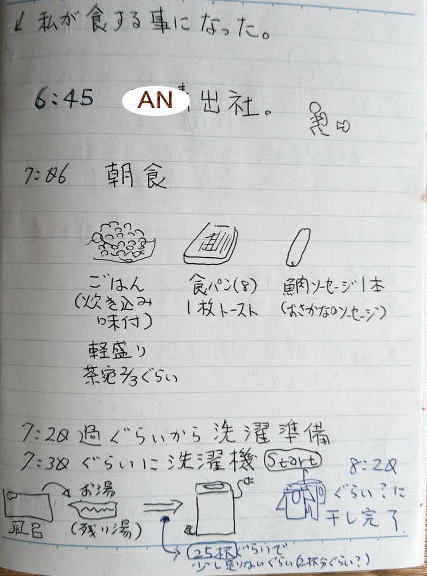 ↙ 私が食する事になった。
6:45 AN 出社。
7:06 朝食
ごはん
(炊き込み
味付)
軽盛り
茶碗2/3ぐらい
食パン(8)
1枚トースト
魚肉ソーセージ1本
(おさかなのソーセージ)
7:20過ぐらいから洗濯準備
7:30ぐらいに洗濯機 Start
8:20
ぐらい?に
干し完了
お湯
(残り湯)
風呂
25杯ぐらいで
少し足りないぐらい(2杯分ぐらい?)